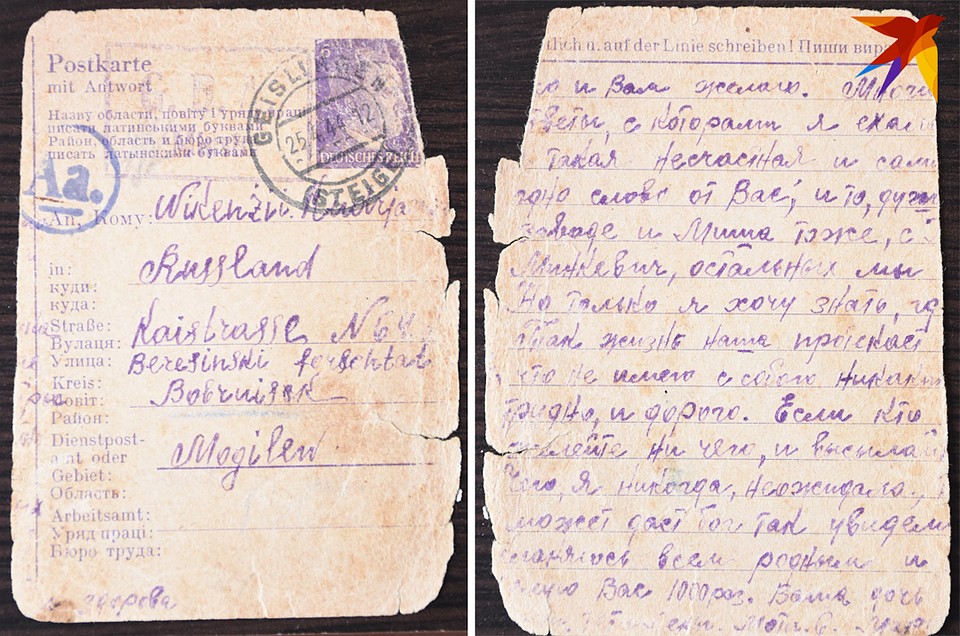 Postkarte
mit Antwort
Назву области, повіту і уряду праці
писати латинськими буквами
Район, область и бюро труда
писать латынскими буквами
DEUTSCHES REICH
GEISLINGEN
25. 44-12
(STEIGE)
Aa.
An, Кому: Wikenzii
in: Russland
куди:
куда:
Straße: Kaistrasse N 64
Вулаця:
Улица: Beresinski forschtat
Kreis: Bobruisk
Повіт:
Район:
Dienstpost-
amt oder Mogilew
Gebiet:
Область:
Arbeitsamt:
Уряд праці:
Бюро труда:
здорова
tlich u. auf der Linie schreiben! Пиши
и Вам желаю.
с которами я ехал
такая несчасная и сам
слово от Вас, и то,
заводе и Миша тоже, с
Минкевич, остальных мы
Но только я хочу знать,
Так жизнь наша протекает
что не имею с собою
трудно, и дорого. Если кто
ни чего, и высыла
чего, я никогда, неожидала.
может даст бог так увидем
всем родным и
Вас 1000 раз. Ваша дочь